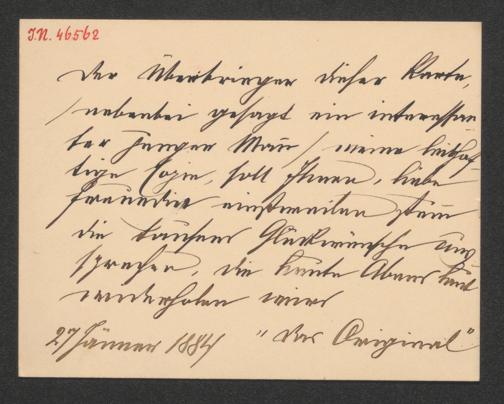 J.N. 46562
Der Überbringer dieser Karte,
/ nebenbei gesagt ein interessan
ter junger Mann / meine leibhaf-
tige Copie, soll Ihnen, liebe
Freundin einstweilen stum
die tausend Glückwünsche aus
sprechen, die heute Abend laut
wiederholen wird
27 Jänner 1884 "das Original"